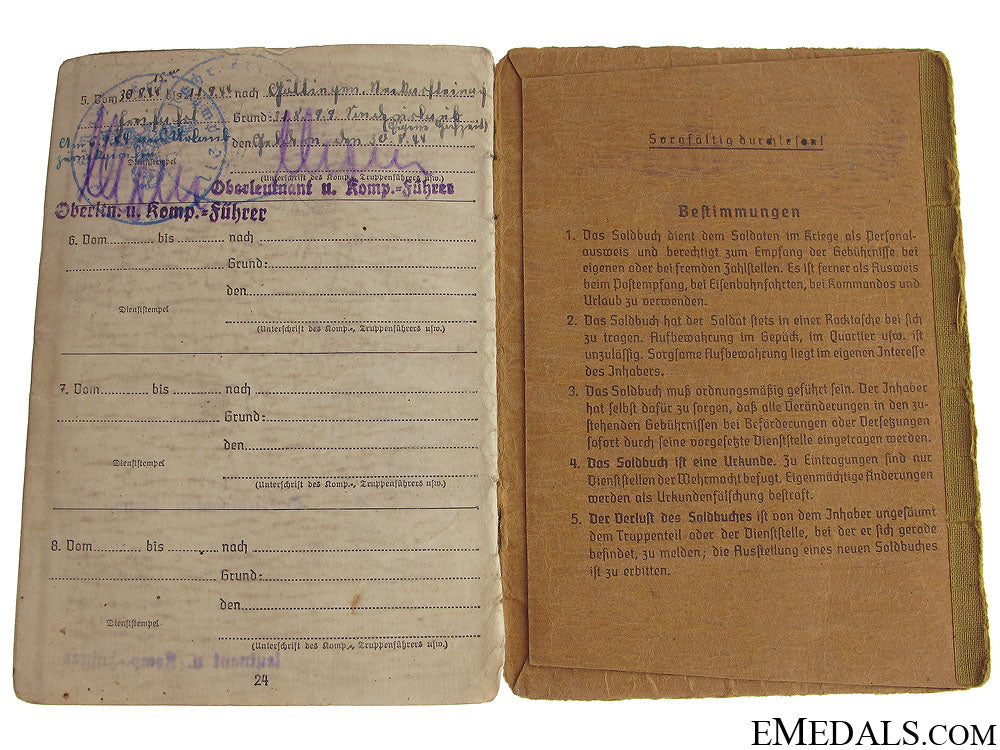 5. Vom 30.8.44 bis nach Göttingen
Grund:
den 30.8.44
Dienststempel
(Unterschrift des Komp.-, Truppenführers usw.)
Oberleutnant u. Komp.-Führer
Oberltn. u. Komp.-Führer
6. Vom bis nach
Grund:
den
Dienststempel
(Unterschrift des Komp.-, Truppenführers usw.)
7. Vom bis nach
Grund:
den
Dienststempel
(Unterschrift des Komp.-, Truppenführers usw.)
8. Vom bis nach
Grund:
den
Dienststempel
(Unterschrift des Komp.-, Truppenführers usw.)
24
Sorgfältig durchlesen!
Bestimmungen
1. Das Soldbuch dient dem Soldaten im Kriege als Personal-
ausweis und berechtigt zum Empfang der Gebührnisse bei
eigenen oder bei fremden Zahlstellen. Es ist ferner als Ausweis
beim Postempfang, bei Eisenbahnfahrten, bei Kommandos und
Urlaub zu verwenden.
2. Das Soldbuch hat der Soldat stets in einer Rocktasche bei sich
zu tragen. Aufbewahrung im Gepäck, im Quartier usw. ist
unzulässig. Sorgsame Aufbewahrung liegt im eigenen Interesse
des Inhabers.
3. Das Soldbuch muß ordnungsmäßig geführt sein. Der Inhaber
hat selbst dafür zu sorgen, daß alle Veränderungen in den zu-
stehenden Gebührnissen bei Beförderungen oder Versetzungen
sofort durch seine vorgesetzte Dienststelle eingetragen werden.
4. Das Soldbuch ist eine Urkunde. Zu Eintragungen sind nur
Dienststellen der Wehrmacht befugt. Eigenmächtige Änderungen
werden als Urkundenfälschung bestraft.
5. Der Verlust des Soldbuches ist von dem Inhaber ungesäumt
dem Truppenteil oder der Dienststelle, bei der er sich gerade
befindet, zu melden; die Ausstellung eines neuen Soldbuches
ist zu erbitten.
EMEDALS.COM